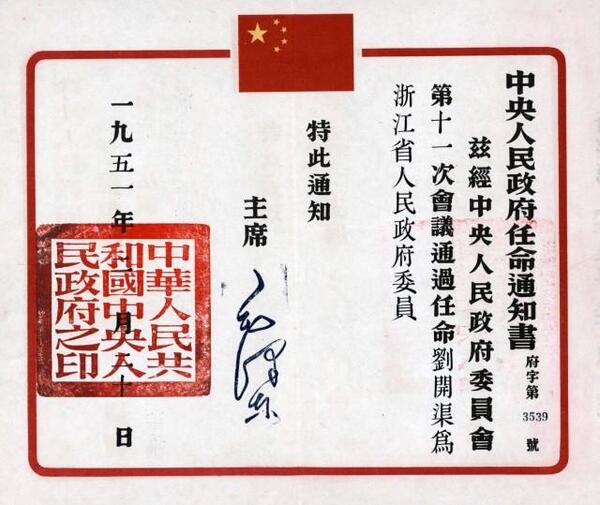 中央人民政府任命通知書
府字第 3539 號
茲經中央人民政府委員會
第十一次會議通過任命劉開渠爲
浙江省人民政府委員
特此通知
主席
毛澤東
一九五一年 月 十日
中華人民共
和國中央人
民政府之印